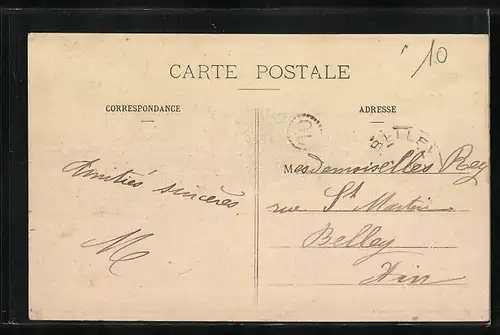 10
CARTE POSTALE
CORRESPONDANCE
ADRESSE
Amitiés sincères
M
Mesdemoiselles Rey
rue St Martin
Belley
Ain